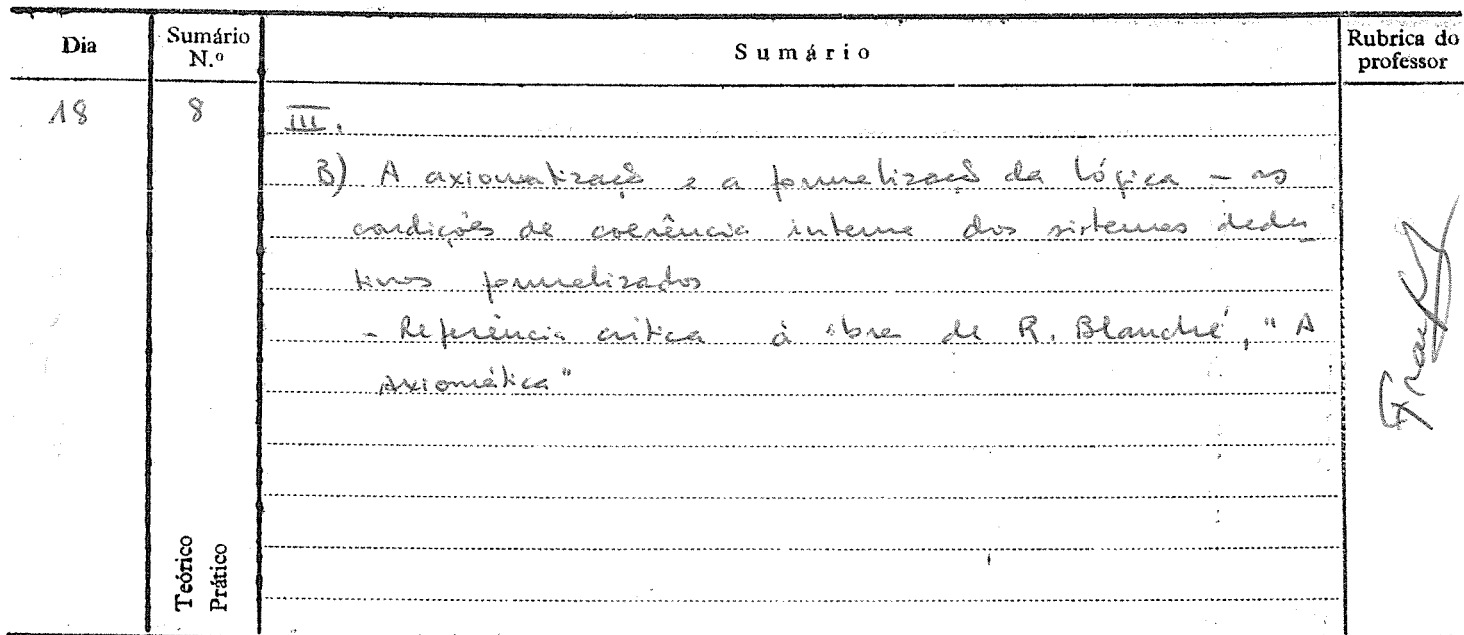 Dia Sumário N.º Sumário Rubrica do professor
18 8 III.
B) A axiomatização e a formalização da lógica – as
condições de coerência interna dos sistemas dedu
tivos formalizados
- Referência crítica à obra de R. Blanché, "A
Axiomática"
Teórico
Prático